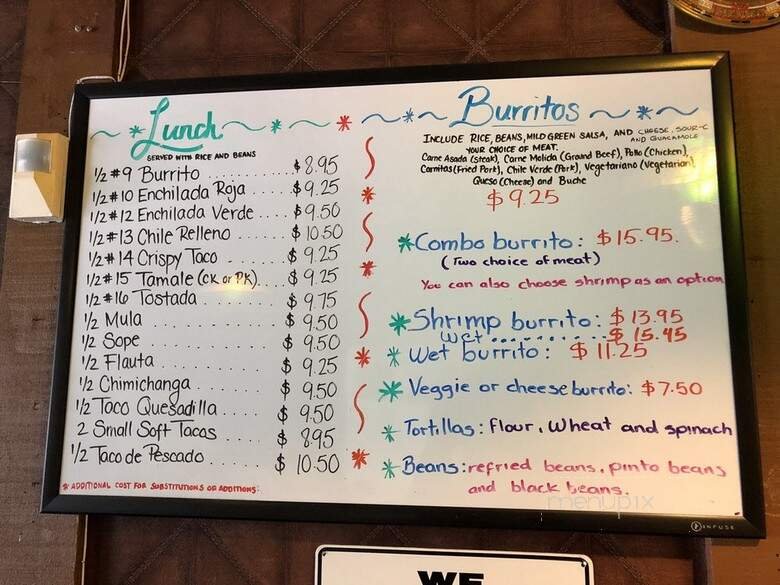 Lunch
SERVED WITH RICE AND BEANS
1/2 #9 Burrito ..... $8.95
1/2 #10 Enchilada Roja .... $9.25
1/2 #12 Enchilada Verde .... $9.50
1/2 #13 Chile Relleno .... $10.50
1/2 #14 Crispy Taco ..... $9.25
1/2 #15 Tamale (CK or PK).... $9.25
1/2 #16 Tostada ....... $9.75
1/2 Mula ......... $9.50
1/2 Sope ......... $9.50
1/2 Flauta ........ $9.25
1/2 Chimichanga ...... $9.50
1/2 Taco Quesadilla ..... $9.50
2 Small Soft Tacos .... $8.95
1/2 Taco de Pescado ..... $10.50
* ADDITIONAL COST FOR SUBSTITUTIONS OR ADDITIONS
Burritos
INCLUDE RICE, BEANS, MILD GREEN SALSA, AND CHEESE, SOUR-C
AND GUACAMOLE
YOUR CHOICE OF MEAT.
Carne Asada (steak), Carne Molida (Ground Beef), Pollo (Chicken),
Carnitas (Fried Pork), Chile Verde (Pork), Vegetariano (Vegetarian)
Queso (Cheese) and Buche
$9.25
*Combo burrito: $15.95.
(Two choice of meat)
You can also choose shrimp as an option
*Shrimp burrito: $13.95
wet ............ $15.45
* Wet burrito: $11.25
* Veggie or cheese burrito: $7.50
* Tortillas: flour, wheat and spinach
* Beans: refried beans, pinto beans
and black beans.
menupix
INFUSE
WE